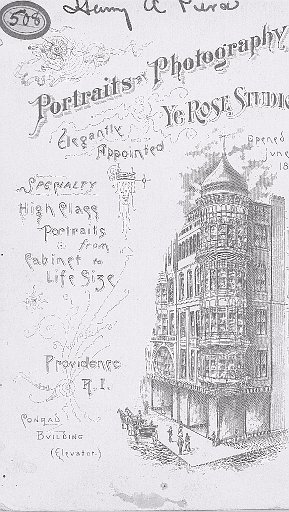 508
Harry A
Portraits by Photography
Ye Rose Studio
Elegantly
Appointed
Opened
June
18
Specialty
High Class
Portraits
from
Cabinet to
Life Size
Providence
R.I.
Conrad
Building
(Elevator.)